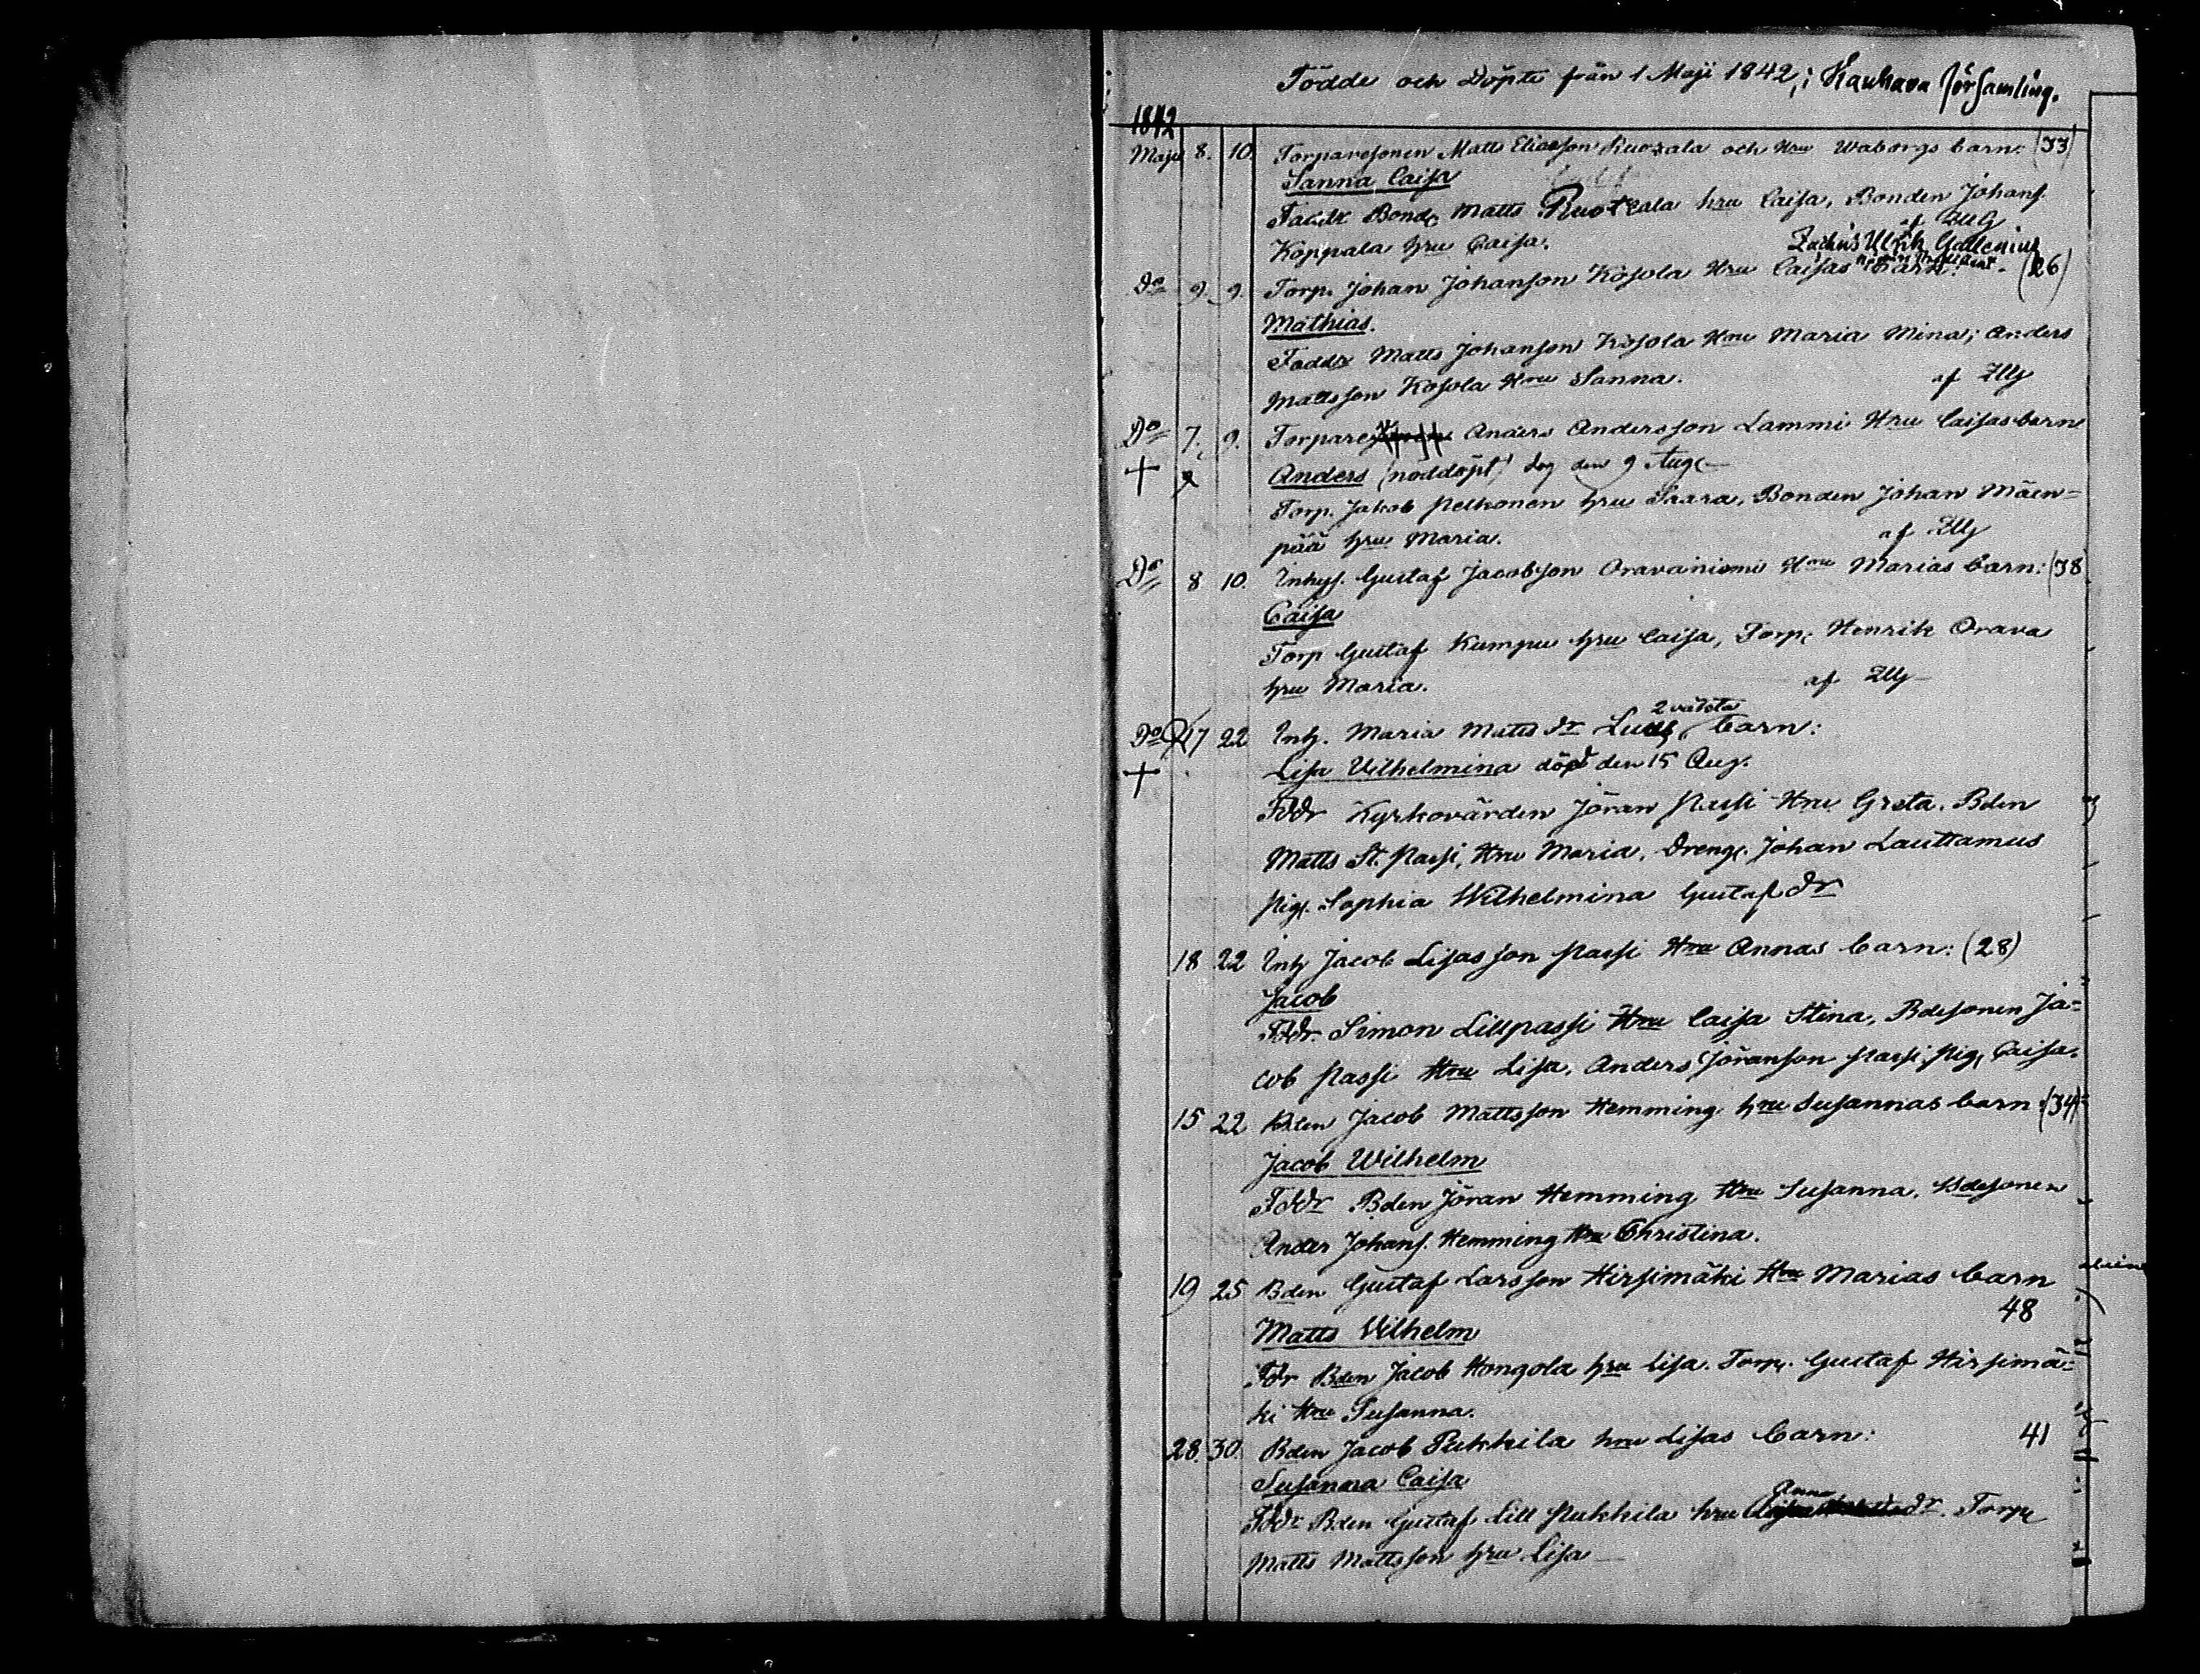 Födde och Döpte från 1 Maji 1842, i Kauhava församling.
1842
Maji 8. 10. Torparesonen Matts Eliasson Ruotsala och Hru Waborgs barn: (33)
Sanna Caisa
Faddr Bond. Matts Ruotsala hru Caisa, Bonden Johans.
Koppala hru Caisa. af ZUG
Zachris Ulrik Gallenius
Do 9. 9. Torp. Johan Johanson Kosola Hru Caisas barn. (26)
Mathias.
Faddr Matts Johanson Kosola Hru Maria Mina; Anders
Mattsson Kosola Hru Sanna. af ZUG
Do 7. 9. Torpare Anders Andersson Lammi Hru Caisas barn
+ Anders (nöddöpt) dog den 9 Aug.
Torp. Jakob Pelkonen hru Saara, Bonden Johan Mäen=
pää hru Maria. af ZUG
Do 8 10. Inhys. Gustaf Jacobson Oravaniemi Hru Marias barn: (38
Caisa
Torp Gustaf Kumpu hru Caisa, Torp. Henrik Orava
hru Maria. af ZUG
2 oäkta
Do 17 22 Inh. Maria Matts dr barn:
+ Lisa Vilhelmina död den 15 Aug.
Fddr Kyrkovärden Jöran Passi Hru Greta. Bden
Matts St. Passi, Hru Maria. Dreng. Johan Lauttamus
Pig. Sophia Wilhelmina Gustafdr
18 22 Inh Jacob Lisasson Passi Hru Annas barn: (28)
Jacob
Fddr. Simon Lillpassi Hru Caisa Stina, Bdesonen Ja=
cob Passi Hru Lisa, Anders Jöranson Passi, Pig. Caisa.
15 22 Bden Jacob Mattsson Hemming hru Susannas barn: (34)
Jacob Wilhelm
Fddr Bden Jöran Hemming Hru Susanna, Bdesonen
Ander Johans. Hemming Hru Christina.
19 25 Bden Gustaf Larsson Hirsimäki Hru Marias barn
48
Matts Vilhelm
Fdr Bden Jacob Hongola hru Lisa. Torp. Gustaf Hirsimä=
ki Hru Susanna.
28. 30. Bden Jacob Pukkila hru Lisas barn: 41
Susanna Caisa
Anna
Fddr Bden Gustaf Lill Pukkila hru dr. Torp.
Matts Mattsson hru Lisa